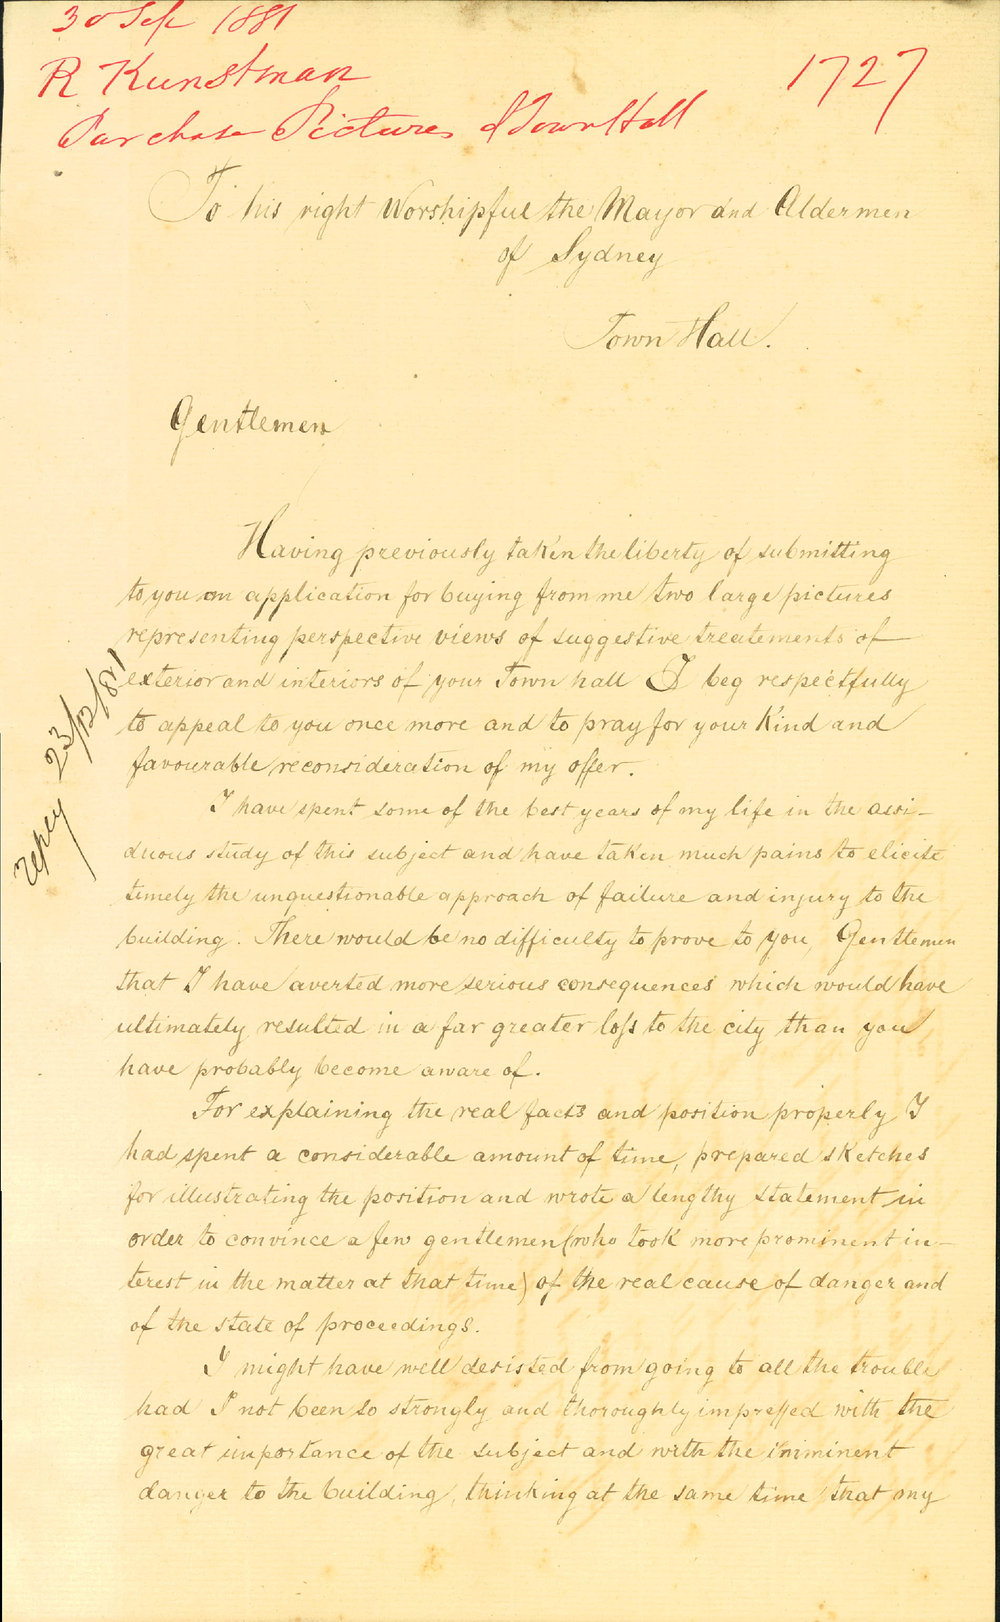 30 Sep 1881
R Kunstman
1727
Purchase Pictures of Town Hall
To his right Worshipful the Mayor and Aldermen
of Sydney
Town Hall.
Gentlemen
Having previously taken the liberty of submitting
to you an application for buying from me two large pictures
representing perspective views of suggestive treatements of
exterior and interiors of your Town hall I beg respectfully
to appeal to you once more and to pray for your kind and
favourable reconsideration of my offer.
I have spent some of the best years of my life in the assi-
duous study of this subject and have taken much pains to elicite
timely the unquestionable approach of failure and injury to the
building. There would be no difficulty to prove to you, Gentlemen
that I have averted more serious consequences which would have
ultimately resulted in a far greater loss to the city than you
have probably become aware of.
For explaining the real facts and position properly I
had spent a considerable amount of time, prepared sketches
for illustrating the position and wrote a lengthy statement in
order to convince a few gentlemen (who took more prominent in-
terest in the matter at that time) of the real cause of danger and
of the state of proceedings.
I might have well desisted from going to all the trouble
had I not been so strongly and thoroughly impressed with the
great importance of the subject and with the imminent
danger to the building, thinking at the same time that my
reply 23/12/81